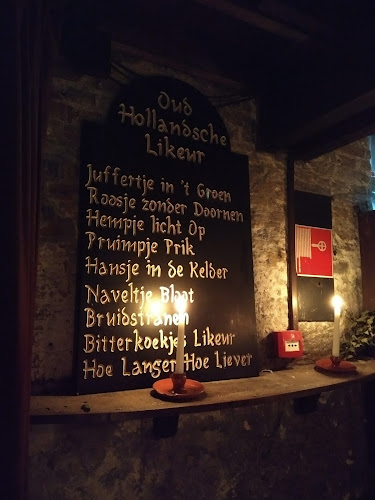 Oud
Hollandsche
Likeur
Juffertje in 't Groen
Roosje zonder Doornen
Hempje licht Op
Pruimpje Prik
Hansje in de Kelder
Naveltje Bloot
Bruidstranen
Bitterkoekjes Likeur
Hoe Langer Hoe Liever